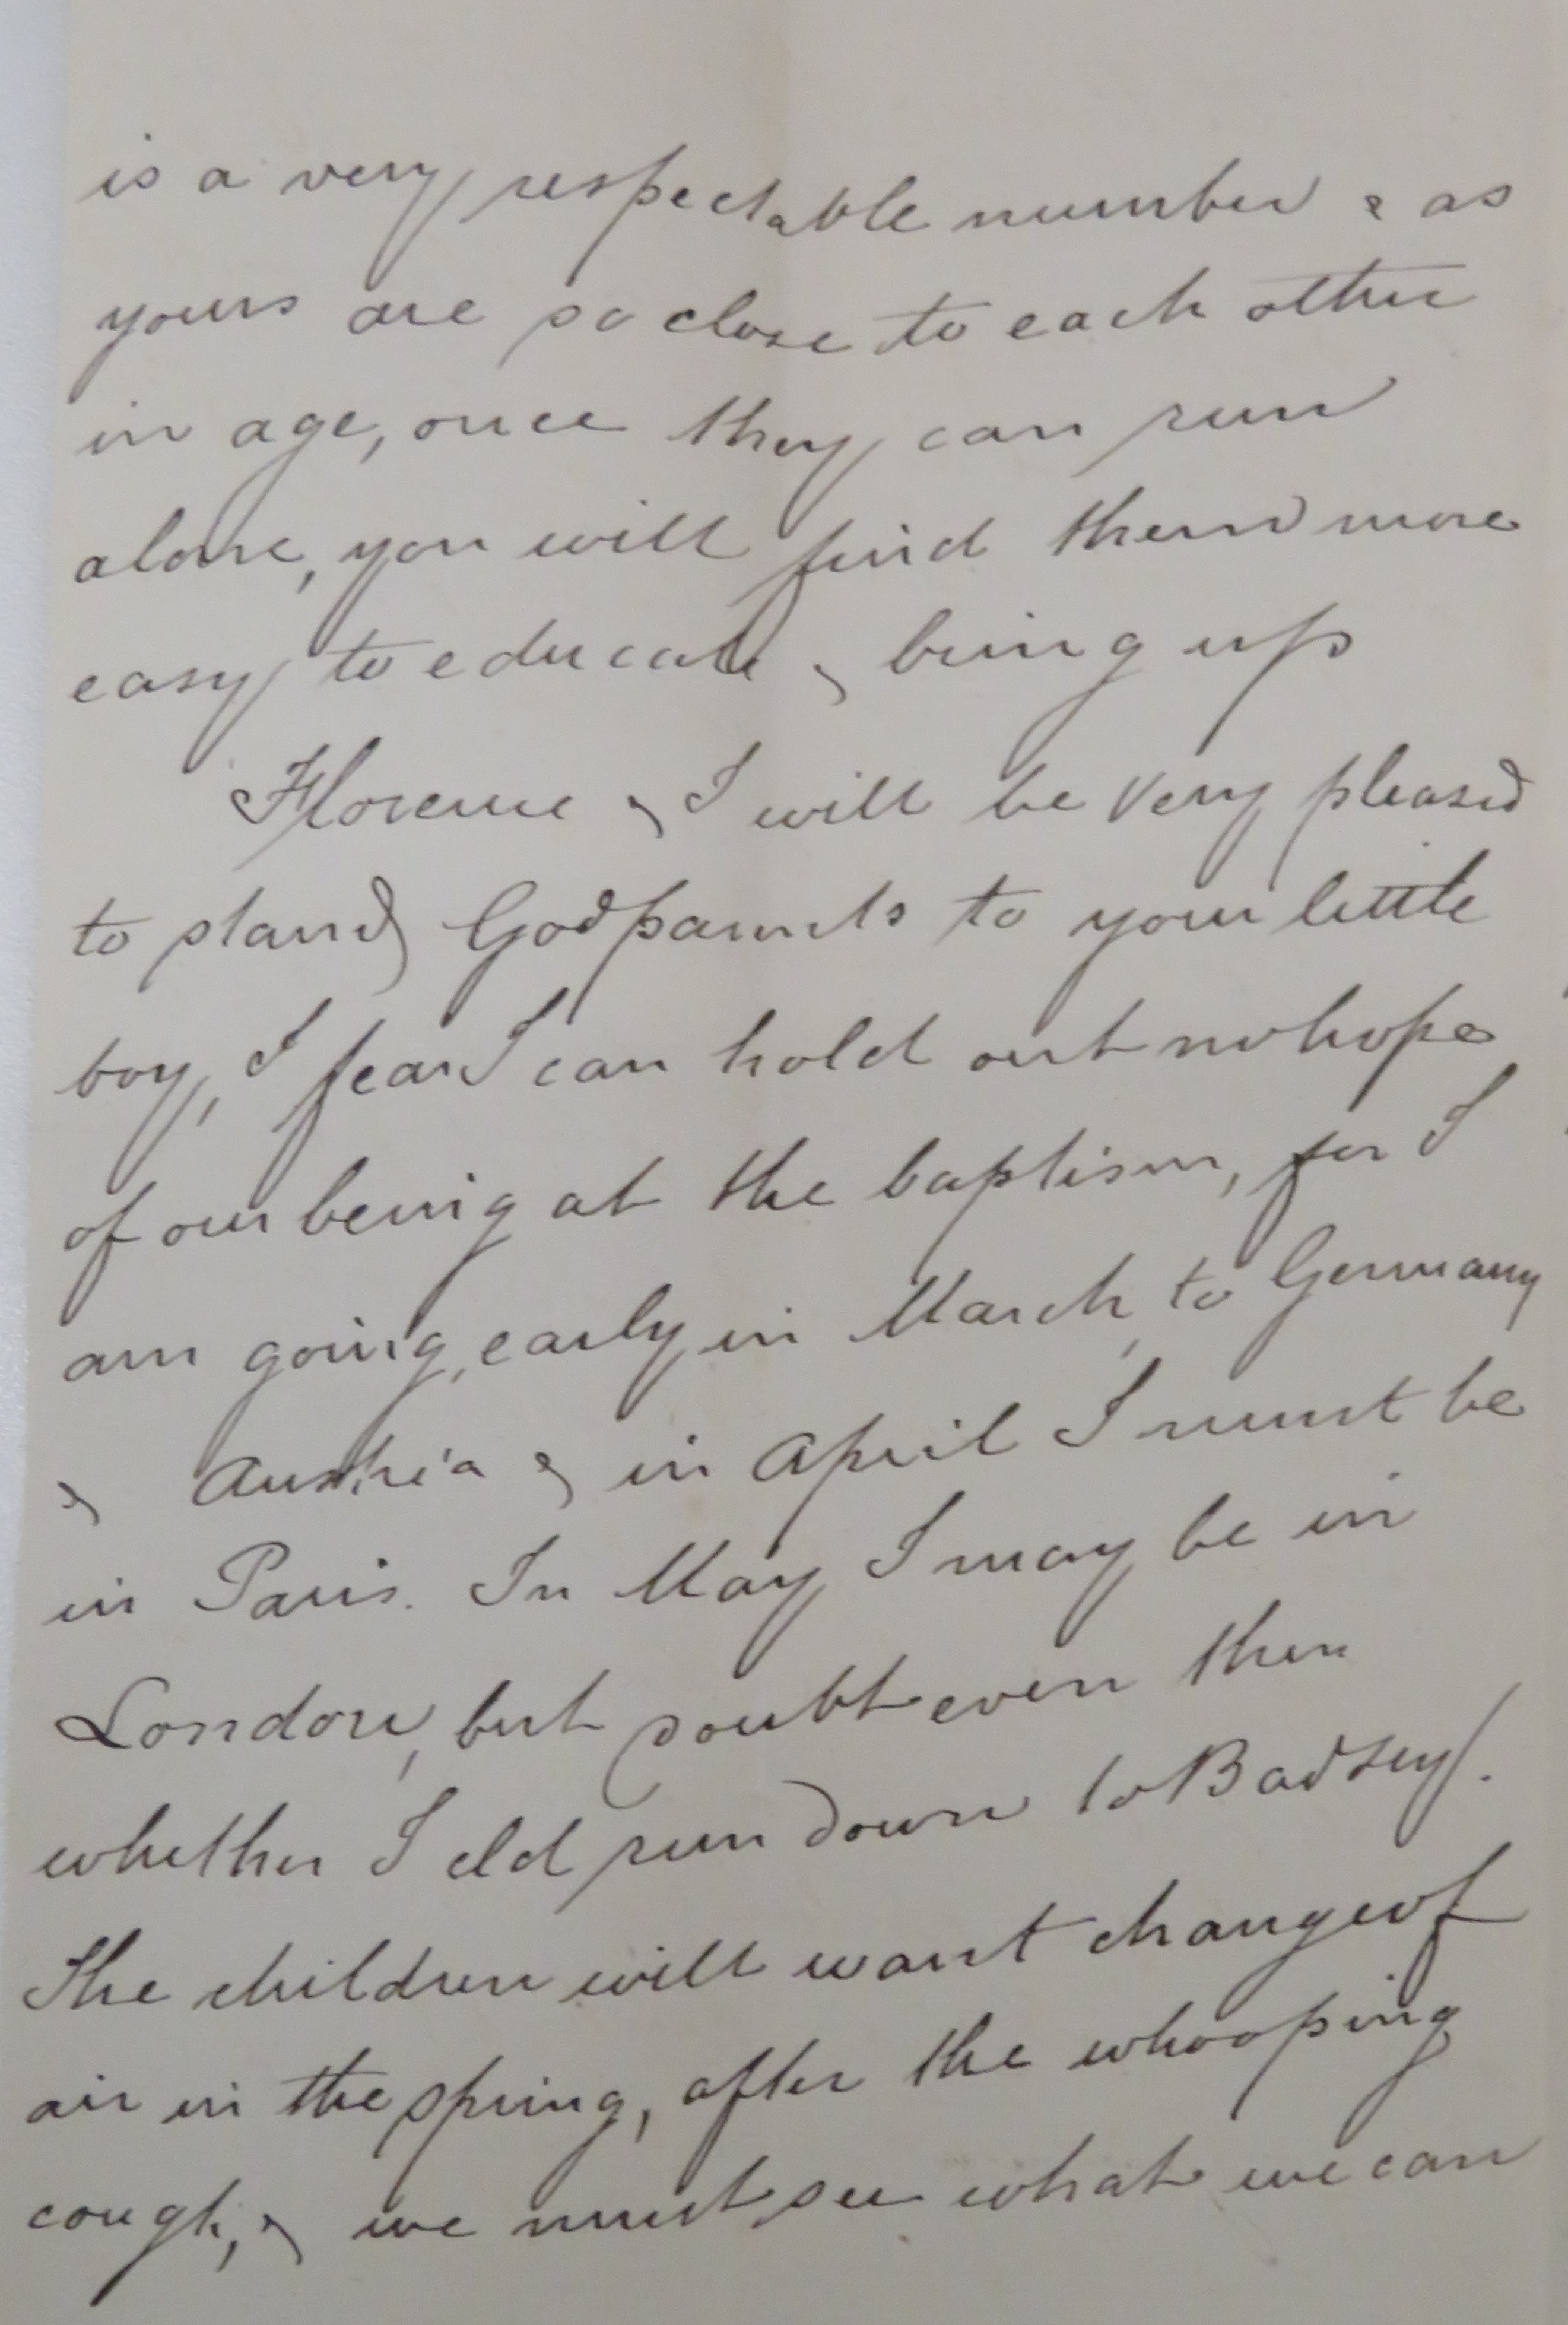 is a very respectable number & as
yours are so close to each other
in age, once they can run
alone, you will find them more
easy to educate & bring up
Florence & I will be very pleased
to stand Godparents to your little
boy, I fear I can hold out no hope
of our being at the baptism, for I
am going, early in March, to Germany
& Austria & in April I must be
in Paris. In May I may be in
London, but doubt even then
whether I cld run down to Badsey.
The children will want change of
air in the spring, after the whooping
cough, & we must see what we can